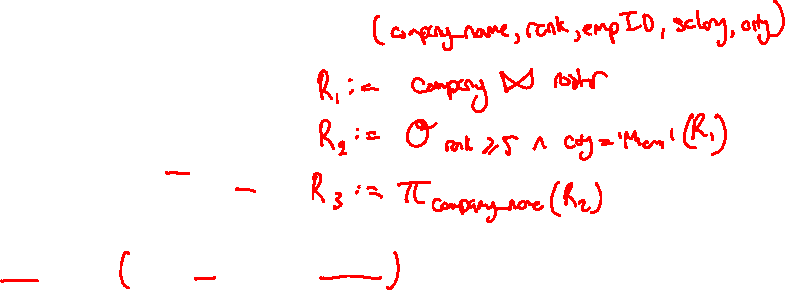 (company_name, rank, empID, salary, city)
R₁ := company ⋈ roster
R₂ := σ rank ≥ 5 ∧ city = 'Miami' (R₁)
R₃ := π company_name (R₂)